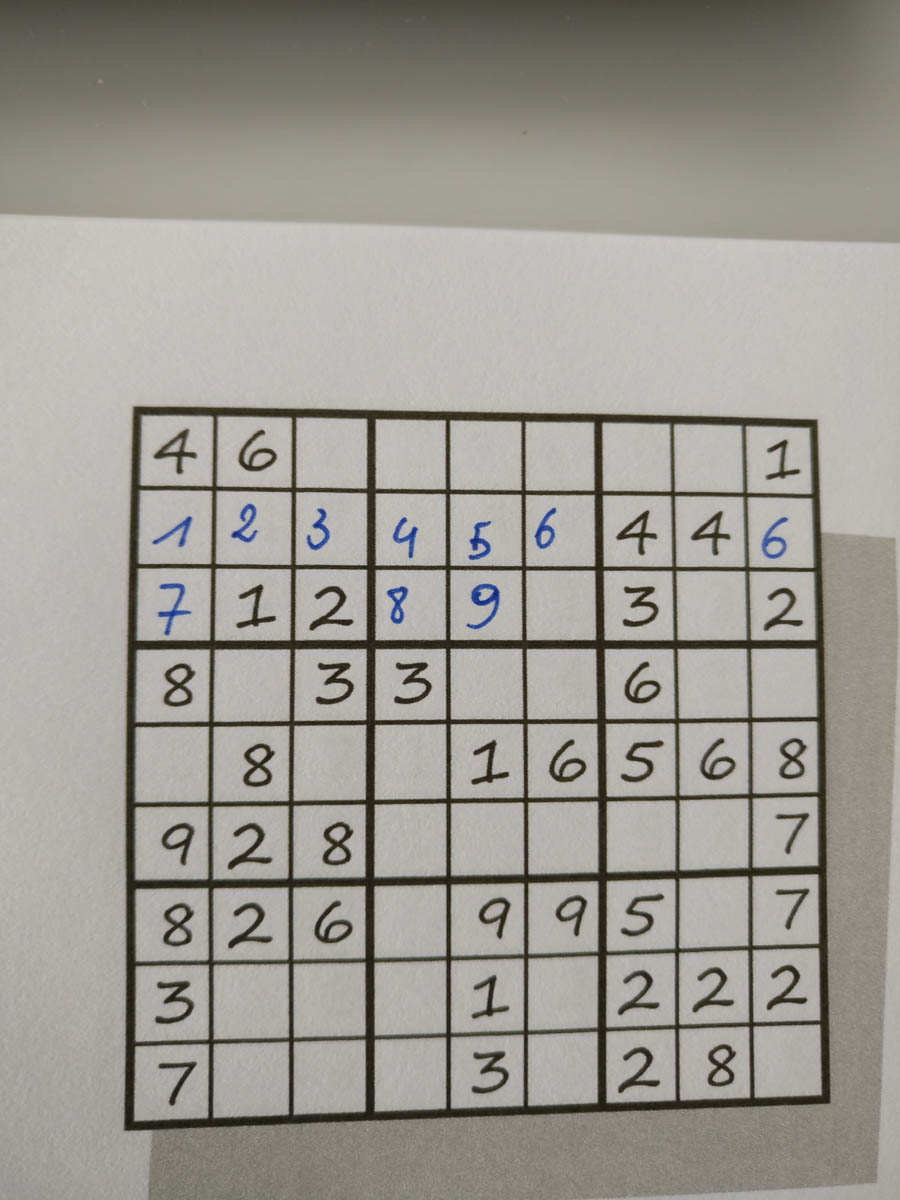 4 6 1
1 2 3 4 5 6 4 4 6
7 1 2 8 9 3 2
8 3 3 6
8 1 6 5 6 8
9 2 8 7
8 2 6 9 9 5 7
3 1 2 2 2
7 3 2 8